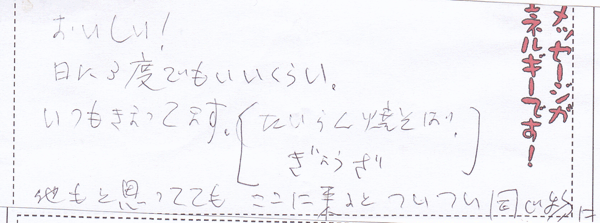 メッセージが
エネルギーです!
おいしい!
日に3度でもいいくらい。
いつもきまってます。(たいらく焼そば、
ぎょうざ)
他もと思ってても ここに来るとついつい同じ物に